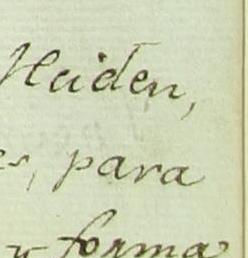 Heiden,
es, para
y forma